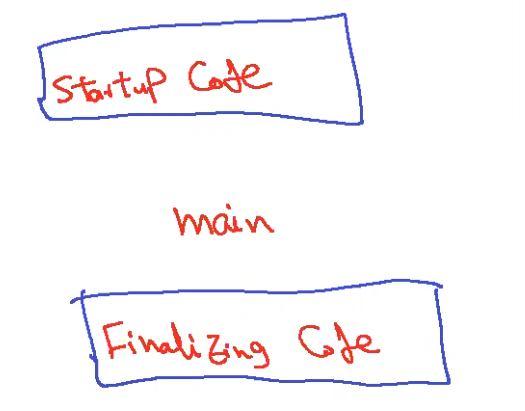 Startup Code
main
Finalizing Code